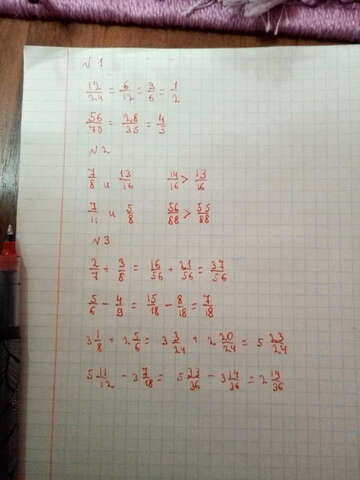 №1
12/24 = 6/12 = 3/6 = 1/2
56/70 = 28/35 = 4/5
№2
7/8 и 13/16 14/16 > 13/16
7/11 и 5/8 56/88 > 55/88
№3
2/7 + 3/8 = 16/56 + 21/56 = 37/56
5/6 - 4/9 = 15/18 - 8/18 = 7/18
3 1/8 + 2 5/6 = 3 3/24 + 2 20/24 = 5 23/24
5 11/12 - 3 7/18 = 5 33/36 - 3 14/36 = 2 19/36